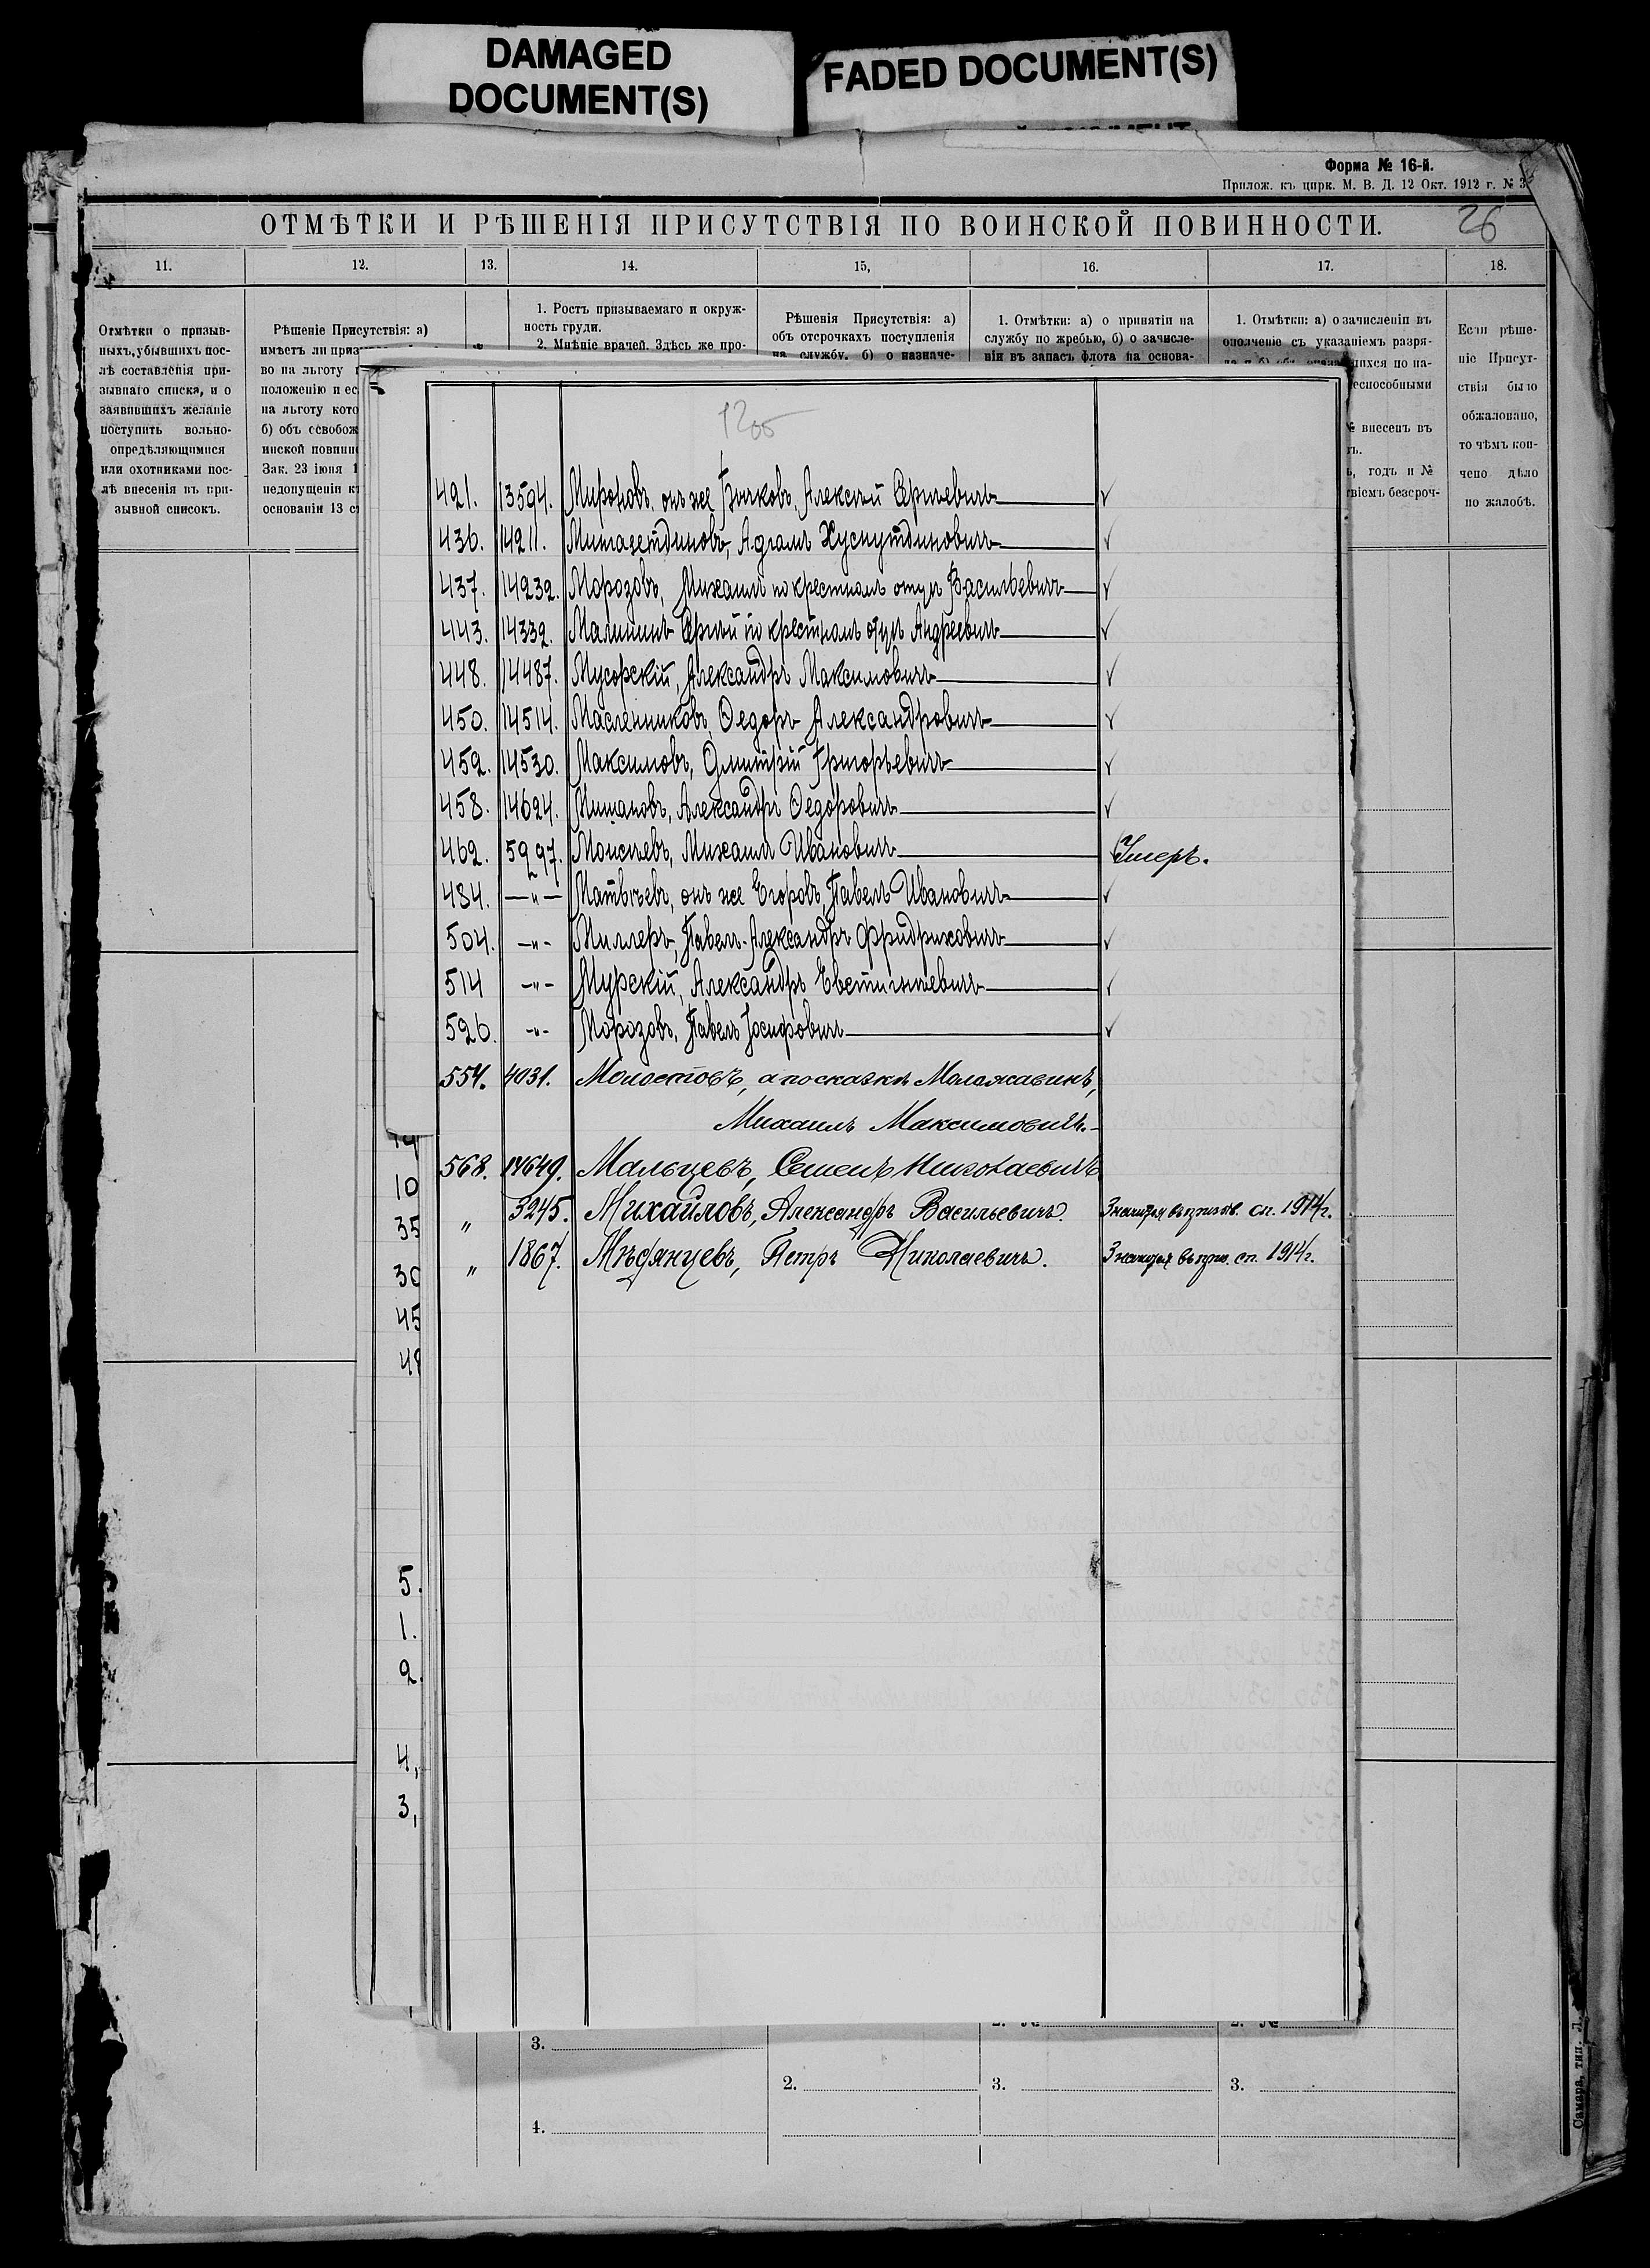 DAMAGED
DOCUMENT(S)
FADED DOCUMENT(S)
Форма № 16-й.
Прилож. къ цирк. М. В. Д. 12 Окт. 1912 г. № 3
ОТМѢТКИ И РѢШЕНІЯ ПРИСУТСТВІЯ ПО ВОИНСКОЙ ПОВИННОСТИ.
26
11. 12. 13. 14. 15, 16. 17. 18.
Отмѣтки о призыв-
ныхъ, убывшихъ пос-
лѣ составленія при-
зывнаго списка, и о
заявившихъ желаніе
поступить вольно-
опредѣляющимися
или охотниками пос-
лѣ внесенія въ при-
зывной списокъ.
Рѣшеніе Присутствія: а)
имѣетъ ли приз
во на льготу
положенію и ес
на льготу кото
б) объ освобож
инской повинн
Зак. 23 іюня 1
недопущеніи къ
основаніи 13 с
1. Ростъ призываемаго и окруж-
ность груди.
2. Мнѣніе врачей. Здѣсь же про-
Рѣшенія Присутствія: а)
объ отсрочкахъ поступленія
на службу, б) о назначе-
1. Отмѣтки: а) о принятіи на
службу по жребью, б) о зачисле-
ніи въ запасъ флота на основа-
1. Отмѣтки: а) о зачисленіи въ
ополченіе съ указаніемъ разря-
шихся по на-
еспособными
№ внесенъ въ
ъ, годъ и №
твіемъ безсроч-
Если рѣше-
ніе Присут-
ствія было
обжаловано,
то чѣмъ кон-
чено дѣло
по жалобѣ.
421. 13594. Мироновъ, онъ же Бычковъ, Алексѣй Сергѣевичъ ✓
436. 14211. Мингазетдиновъ, Адгамъ Хуснутдиновичъ ✓
437. 14232. Морозовъ, Михаилъ по крестномъ отцѣ Васильевичъ ✓
443. 14332. Малининъ Сергѣй по крестномъ отцѣ Андреевичъ ✓
448. 14487. Мусорскій, Александръ Максимовичъ ✓
450. 14514. Масленниковъ, Ѳедоръ Александровичъ ✓
452. 14530. Максимовъ, Дмитрій Григорьевичъ ✓
458. 14624. Мишановъ, Александръ Ѳедоровичъ ✓
462. 5997. Моисѣевъ, Михаилъ Ивановичъ Умеръ.
484. —"— Матвѣевъ, онъ же Егоровъ, Павелъ Ивановичъ ✓
504. -"- Миллеръ, Павелъ-Александръ Фридриховичъ ✓
514 -"- Мурскій, Александръ Евстигнѣевичъ ✓
526. -"- Морозовъ, Павелъ Іосифовичъ ✓
554. 4031. Молостовъ, а по сказкѣ Моложавинъ,
Михаилъ Максимовичъ.
568. 14649. Мальцевъ, Семенъ Николаевичъ
" 3245. Михайловъ, Александръ Васильевичъ. Значится въ призыв. сп. 1914 г.
" 1867. Мѣдянцевъ, Петръ Николаевичъ. Значится въ приз. сп. 1914 г.
10
35
30
45
48
5.
1.
2.
4,
3,
2. № 2. №
3.
2. 3. 3.
4.
Самара, тип.